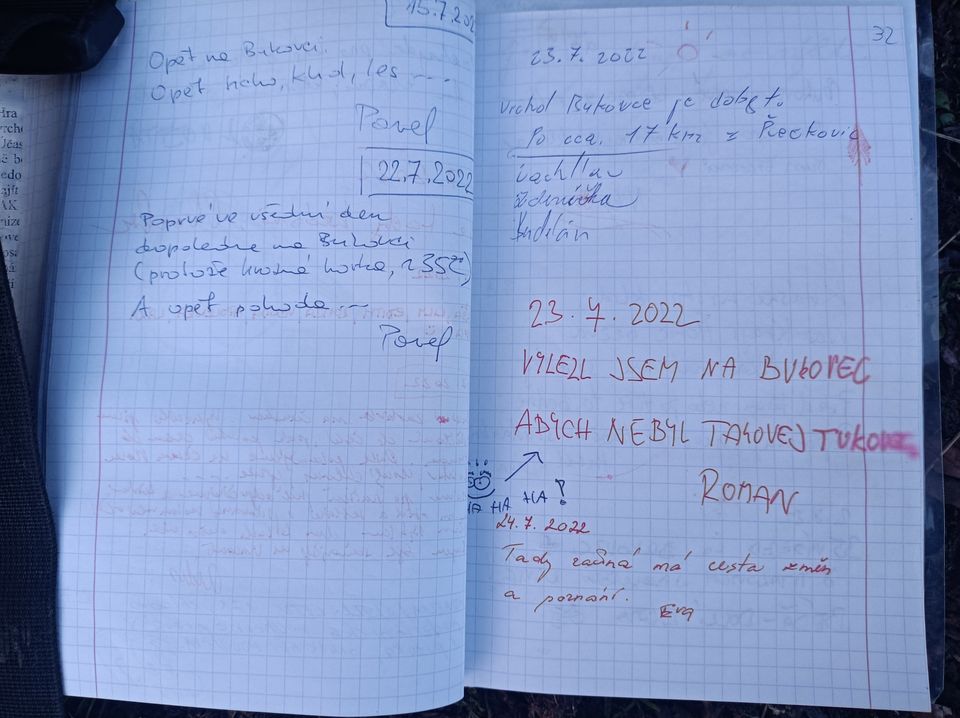 15.7.2022
Opět na Bukovci.
Opět ticho, klid, les ....
Pavel
22.7.2022
Poprvé ve všední den
dopoledne na Bukovci
(protože hrozná horka, ~35°C)
A opět pohoda ...
Pavel
32
23.7.2022
Vrchol Bukovce je dobyt.
Po cca. 17 km z Řečkovic
23.7.2022
VYLEZL JSEM NA BUKOVEC
ABYCH NEBYL TAKOVEJ TUKOVEC
ROMAN
HA HA HA!
24.7.2022
Tady začíná má cesta změn
a poznání. Eva